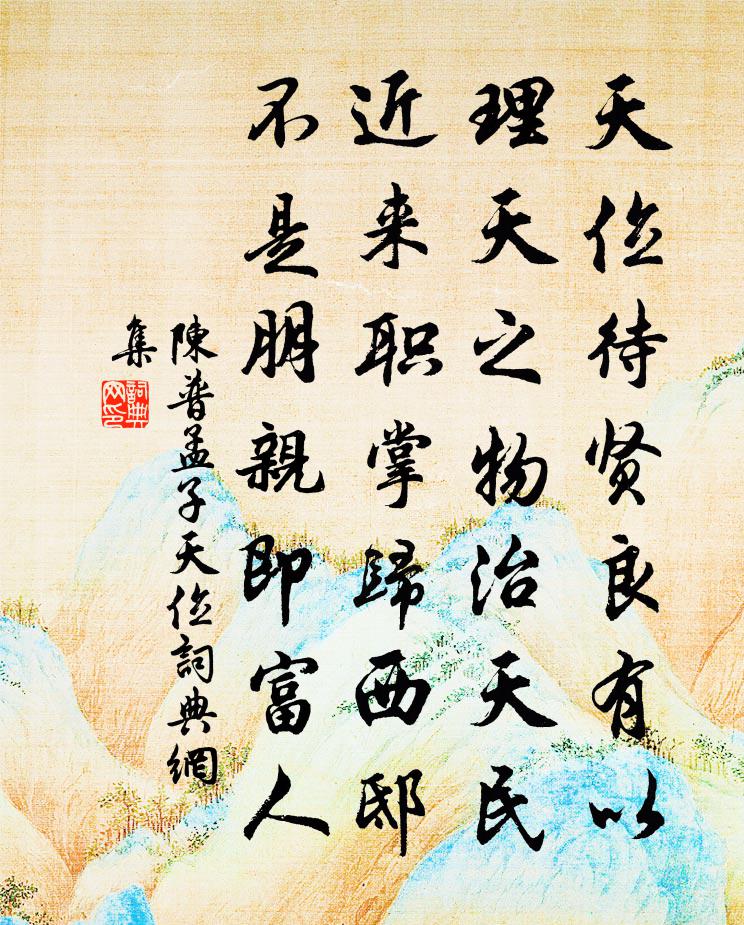 天位待贤良有以
理天之物治天民
近来职掌歸西邸
不是朋親即富人
陳普孟子天位詞典網
集
詞典網印